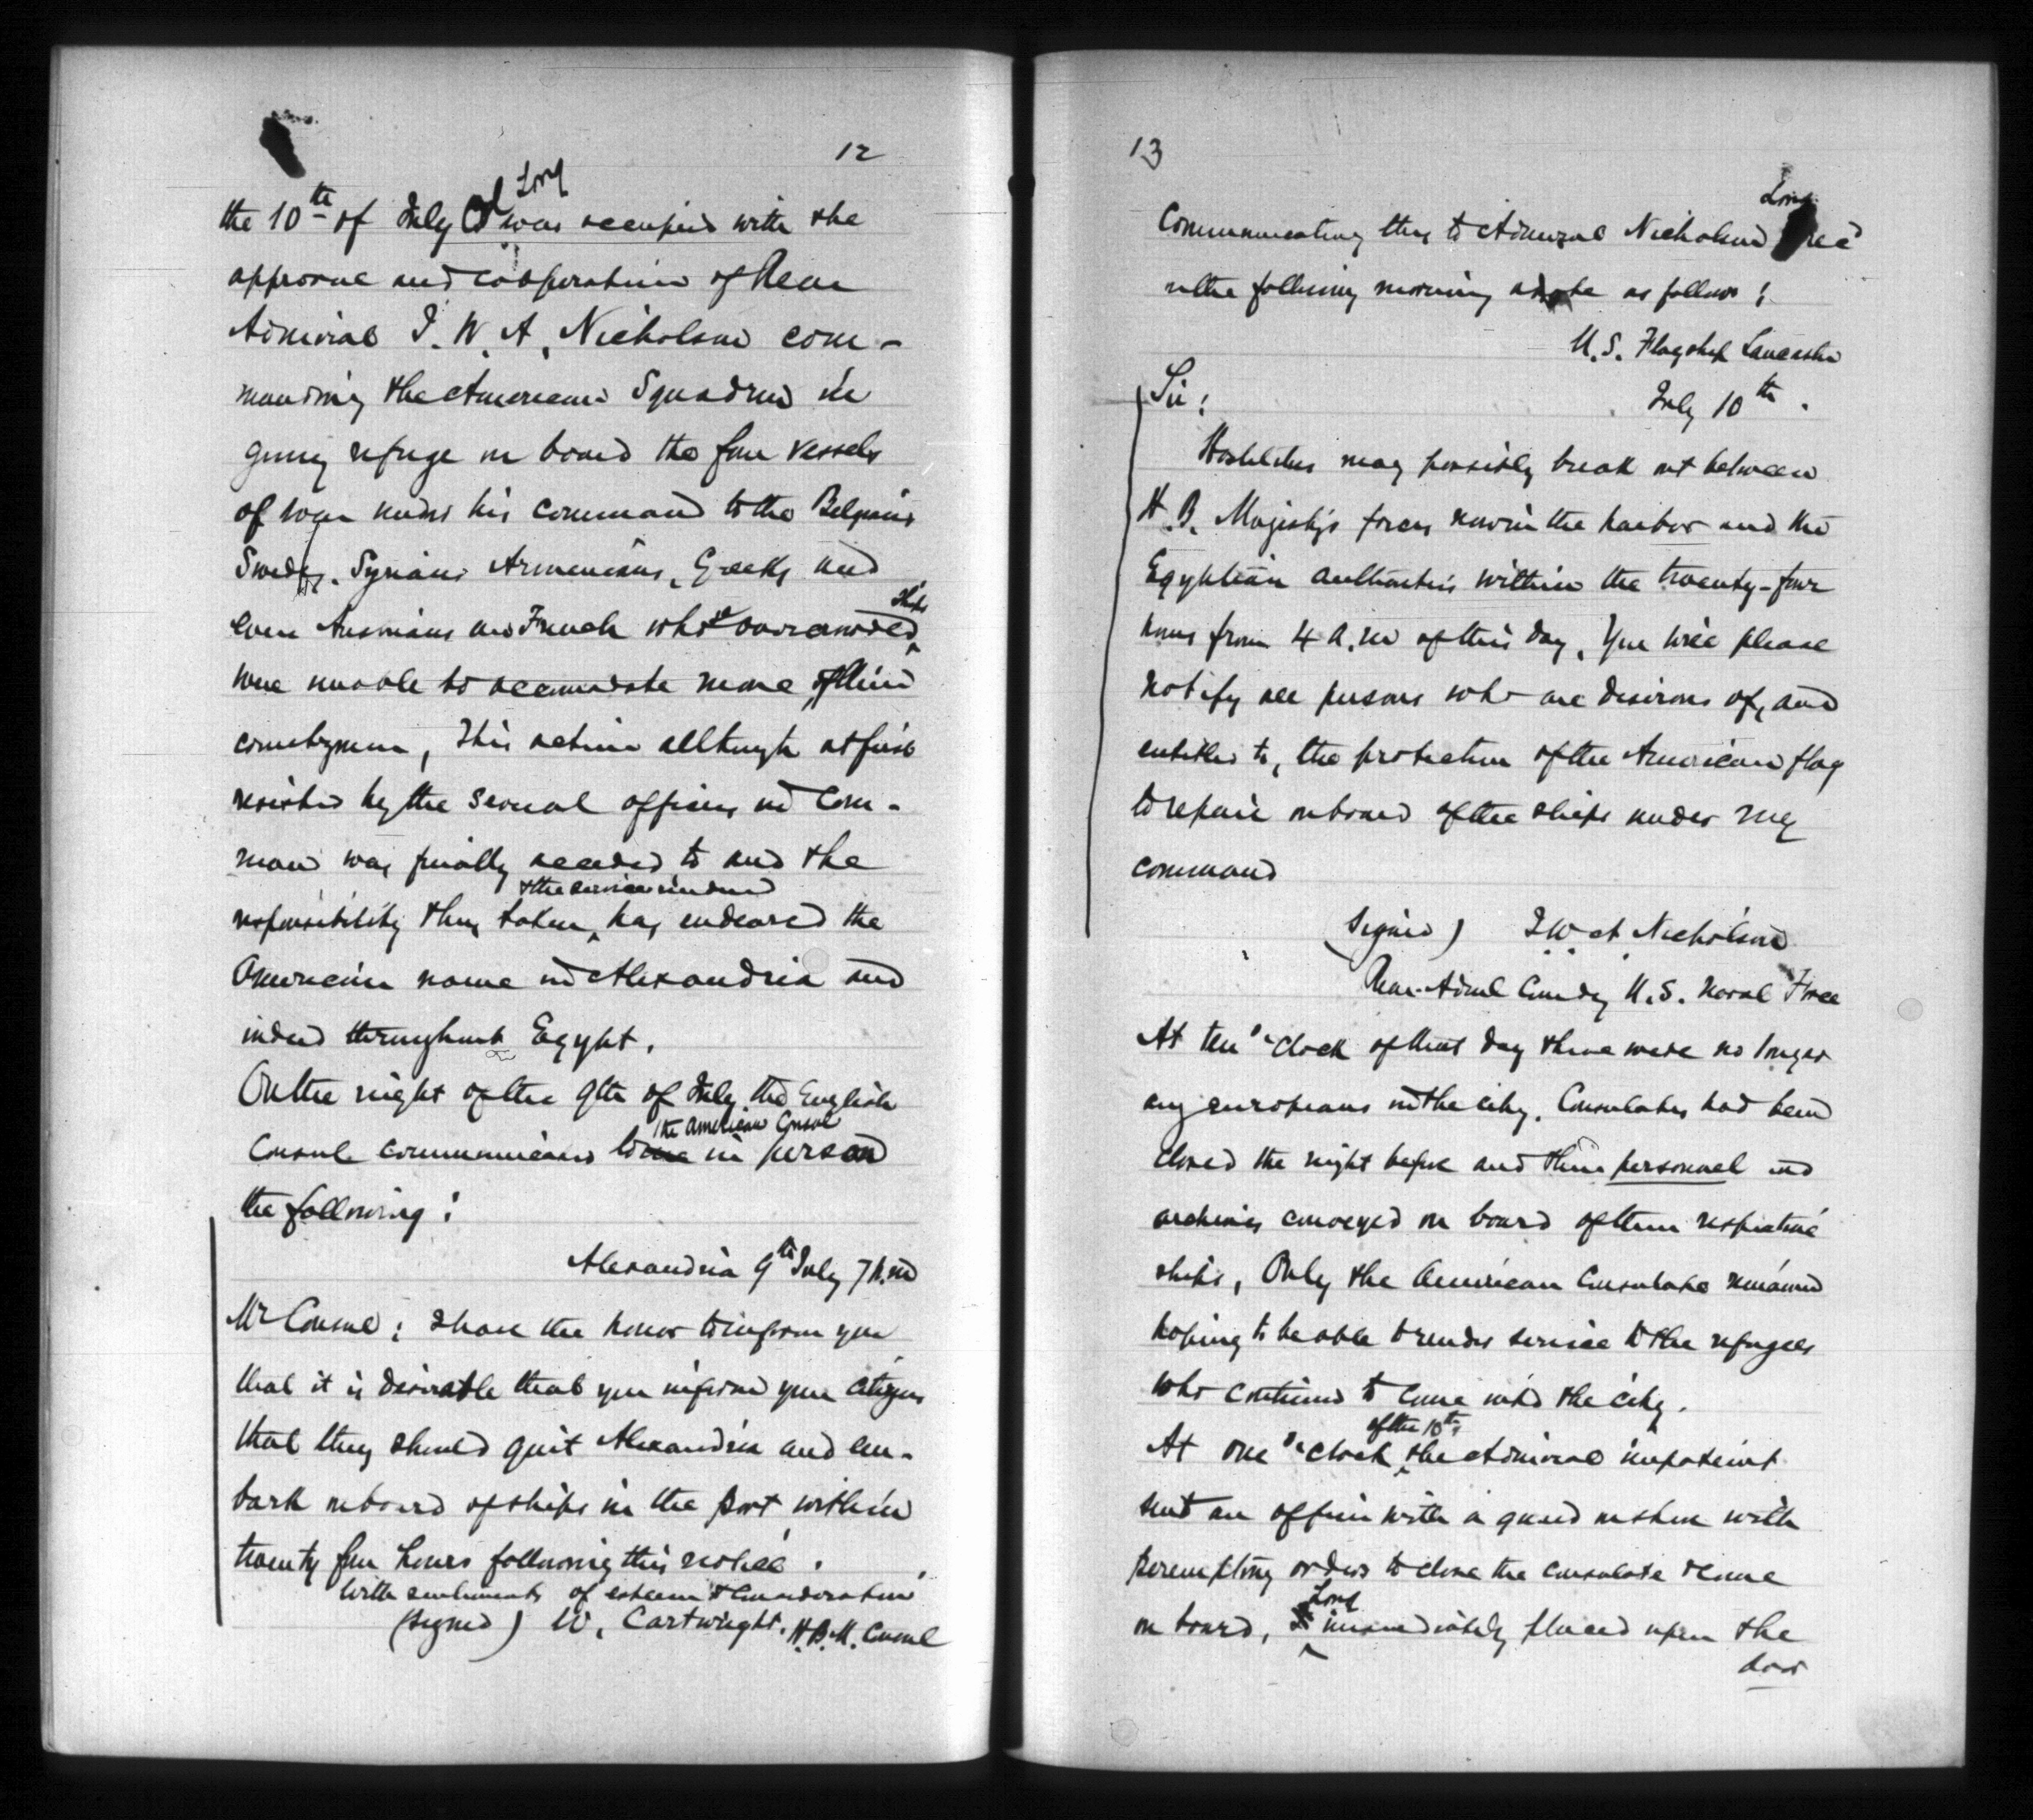 12
the 10th of July Col Long was occupied with the
approval and cooperation of Rear
Admiral J. W. A. Nicholson com-
manding the American Squadron in
giving refuge on board the four vessels
of war under his command to the Belgians
Swedes, Syrians Armenians, Greeks and
even Austrians and French whose overcrowded ships
were unable to accomodate more of their
countrymen, This action allthough at first
resisted by the several officers in Com-
mand was finally acceded to and the
responsibility thus taken & the services rendered has endeared the
American name in Alexandria and
indeed throughout Egypt.
On the night of the 9th of July the English
Consul communicated to me the American Consul in person
the following:
Alexandria 9th July 7 P.m
Mr Consul: I have the honor to inform you
that it is desirable that you inform your citizens
that they should quit Alexandria and em-
bark on board of ships in the port within
twenty four hours following this notice.
With sentiments of esteem & consideration
(signed) W. Cartwright. H.B.M. Consul
13
Communicating this to Admiral Nicholson Long rec'd
on the following morning a note as follows:
U.S. Flagship Lancaster
July 10th.
Sir:
Hostilities may possibly break out between
H.B. Majesty's forces now in the harbor and the
Egyptian authorities within the twenty-four
hours from 4 A.m of this day. You will please
notify all persons who are desirous of, and
entitled to, the protection of the American flag
to repair on board of the ships under my
command
(signed) J W A Nicholson
Rear-Adml Comdg U.S. Naval Force
At ten o'clock of that day there were no longer
any europeans in the city. Consulates had been
closed the night before and their personnel and
archives conveyed on board of their respective
ships, Only the American Consulate remained
hoping to be able to render service to the refugees
who continued to come into the city.
At one o'clock of the 10th, the Admiral impatient
sent an officer with a guard on shore with
peremptory orders to close the consulate & come
on board, Long immediately placed upon the
door